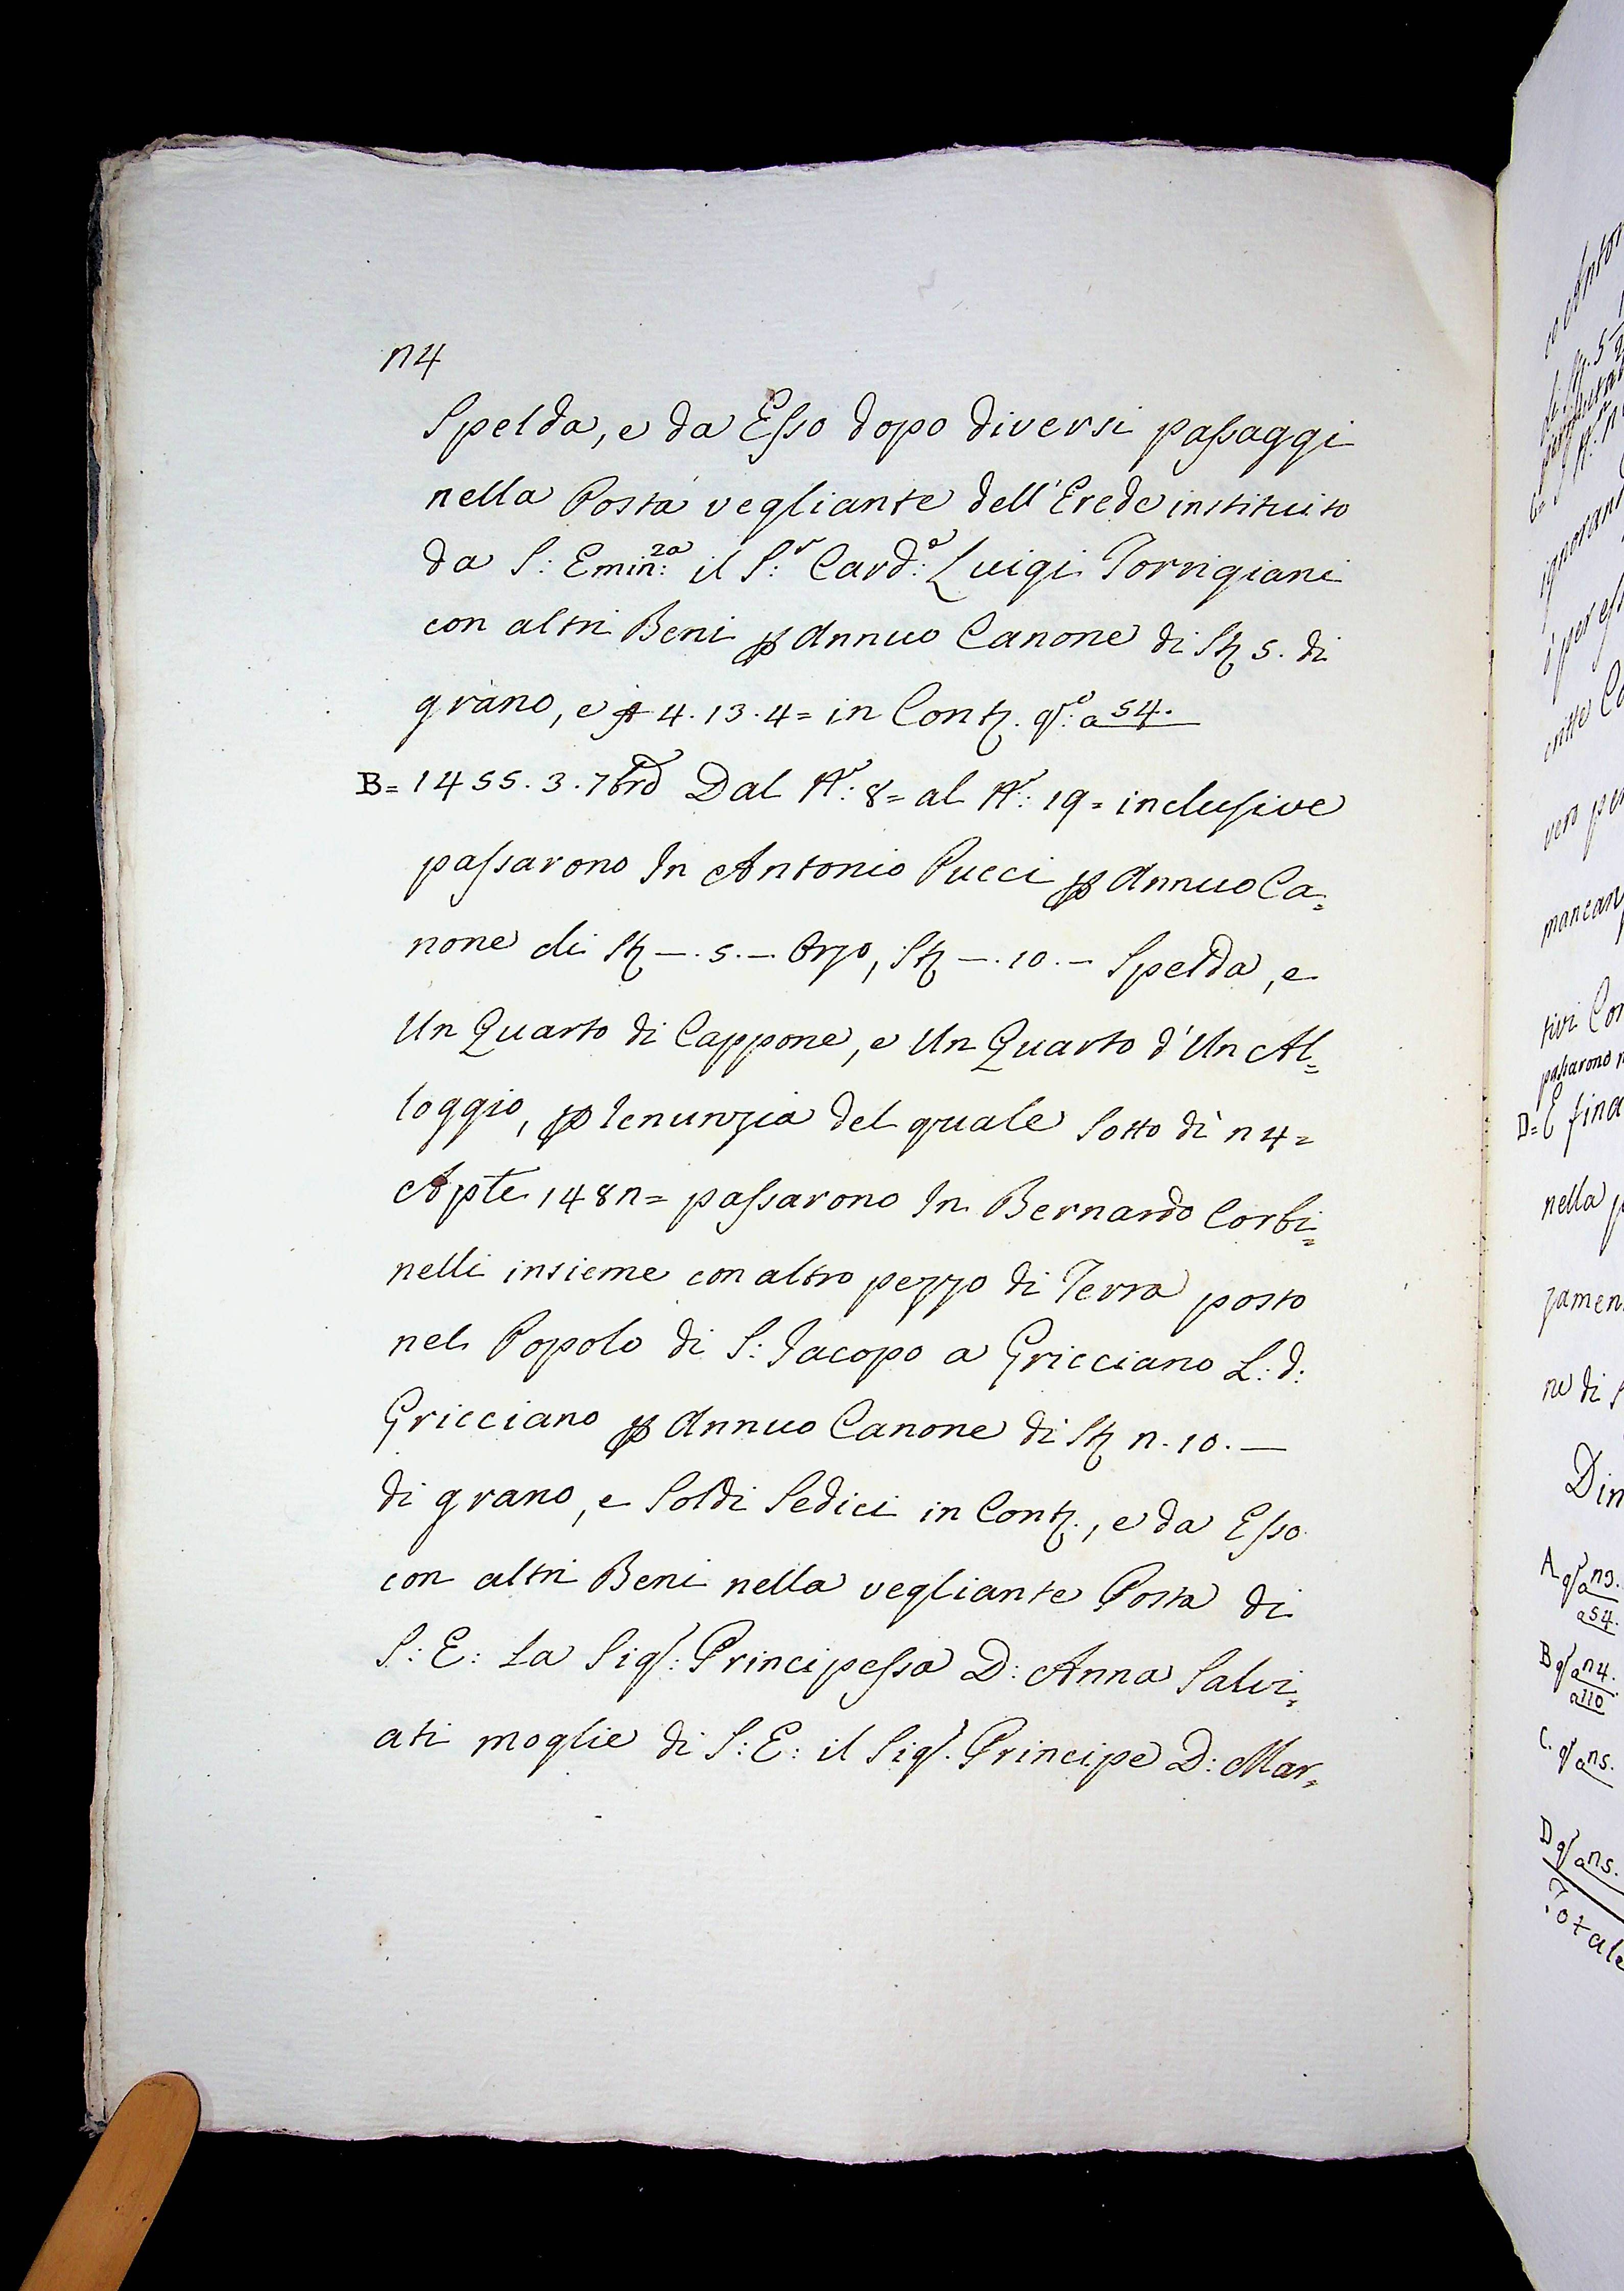 n4
Spelda, e da Esso dopo diversi passaggi
nella Posta vegliante dell'Erede instituito
da S: Emin:za il S:r Card:e Luigi Torrigiani
con altri Beni p Annuo Canone di St 5. di
grano, e 4.13.4= in Cont. a 54.
B= 1455. 3. 7brd Dal N:o 8= al N:o 19= inclusive
passarono In Antonio Pucci p Annuo Ca=
none di St —. 5. — Orzo, St —. 10. — Spelda, e
Un Quarto di Cappone, e Un Quarto d'Un Al=
loggio, p renunzia del quale Sotto dì n4=
Aple 148n= passarono In Bernardo Corbi=
nelli insieme con altro pezzo di Terra posto
nel Popolo di S: Jacopo a Gricciano L: d:
Gricciano p Annuo Canone di St n. 10. —
di grano, e Soldi Sedici in Cont., e da Esso
con altri Beni nella vegliante Posta di
S: E: La Sig: Principessa D: Anna Salvi=
ati moglie di S: E: il Sig. Principe D: Mar=
ignorant
mancan
tivi Con
passarono n
D= E fina
nella p
zamen
ne di S
Din
A an3.
a54.
B an4.
a110
C. an5.
D an5.
Totale